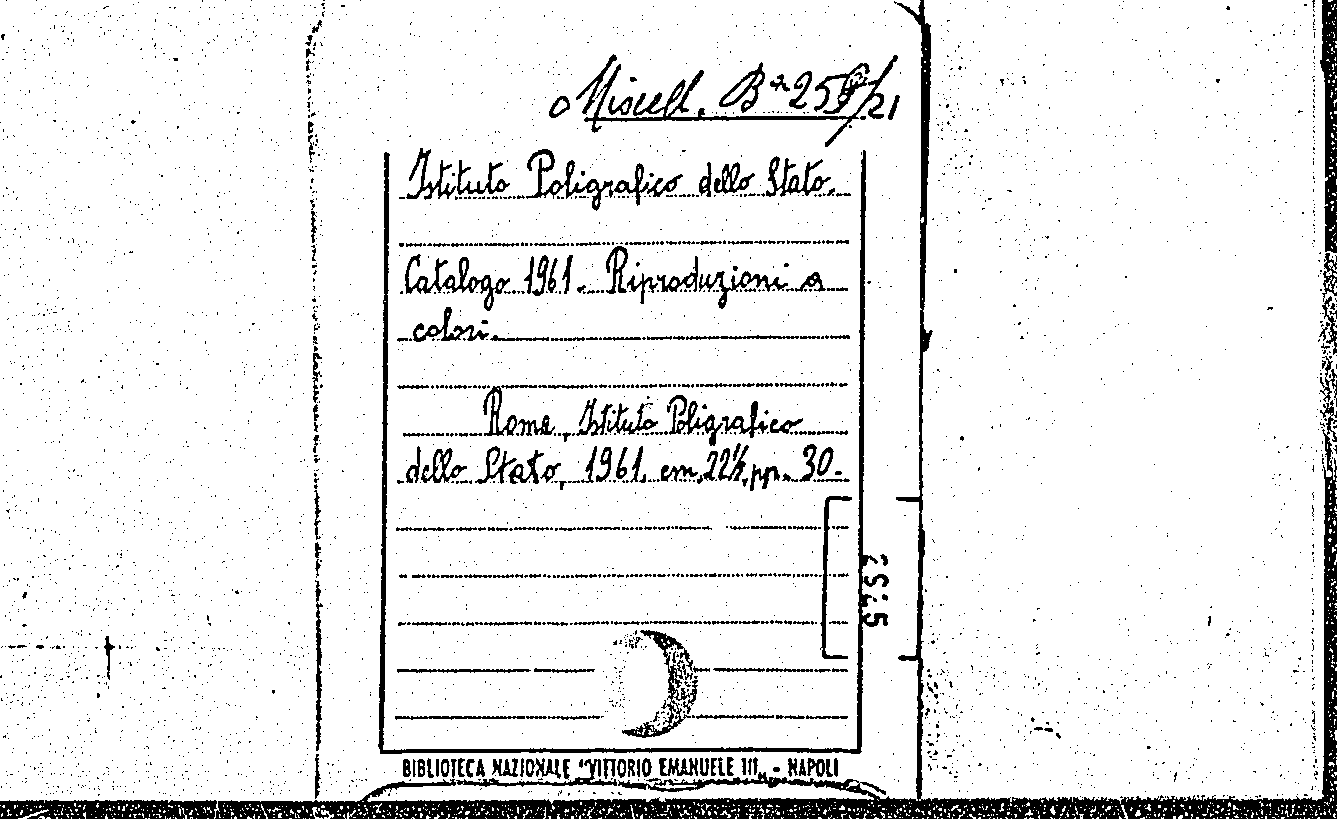 Miscell. Bª 25 /21
Istituto Poligrafico dello Stato.
Catalogo 1961. Riproduzioni a
colori.
Roma, Istituto Poligrafico
dello Stato, 1961, cm. 22½, pp. 30.
BIBLIOTECA NAZIONALE "VITTORIO EMANUELE III" - NAPOLI